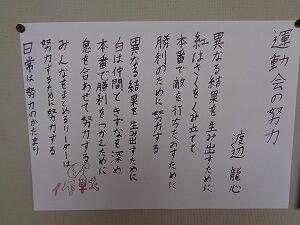 運動会の努力
渡辺 龍心
異なる結果を生み出すために
紅はさくをくみ立てて
本番で敵を打ちたおすために
勝利のために努力する
異なる結果を生み出すために
白は仲間ときずなを深め
本番で勝利をつかむために
息を合わせて努力する
みんなをまとめるリーダーは
努力するために努力する
日常は努力のかたまり